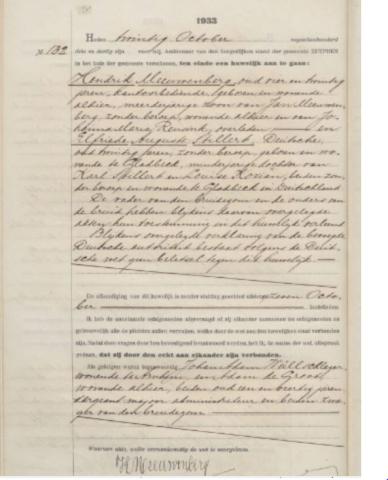 1933
Heden twintig October negentienhonderd
N. 132 drie en dertig zijn voor mij, Ambtenaar van den burgerlijken stand der gemeente ZUTPHEN
in het huis der gemeente verschenen, ten einde een huwelijk aan te gaan:
Hendrik Meeuwenberg, oud vier en twintig
jaren, kantoorbediende, geboren en wonende
alhier, meerderjarige zoon van Jan Meeuwen-
berg, zonder beroep, wonende alhier en van Jo-
hanna Maria, overleden en
Elfriede Auguste Stellert, Duitsche,
oud twintig jaren, zonder beroep, geboren en wo-
nende te Gladbeck, minderjarige dochter van
Karl Stellert en Louise, beiden zon-
der beroep en wonende te Gladbeck in Duitschland
De vader van den bruidegom en de ouders van
de bruid hebben blijkens daarvan overgelegde
akten hun toestemming tot dit huwelijk verleend
Blijkens overgelegde verklaring van de bevoegde
Duitsche autoriteit bestaat volgens de Duit-
sche wet geen beletsel tegen dit huwelijk.
De afkondiging van dit huwelijk is zonder stuiting geschied den zeven Octo-
ber
Ik heb de aanstaande echtgenooten afgevraagd of zij elkander aannemen tot echtgenooten en
getrouwelijk alle de plichten zullen vervullen, welke door de wet aan den huwelijken staat verbonden
zijn. Nadat deze vragen door hen bevestigend beantwoord werden, heb ik, in naam der wet, uitgesproken
dat zij door den echt aan elkander zijn verbonden.
Als getuigen waren tegenwoordig: Johan
wonende te Arnhem, en Adam de Groot,
wonende alhier, beiden oud een en veertig jaren
sergeant majoor administrateur en beiden zwa-
ger van den bruidegom
Waarvan akte, welke overeenkomstig de wet is voorgelezen.
H. Meeuwenberg